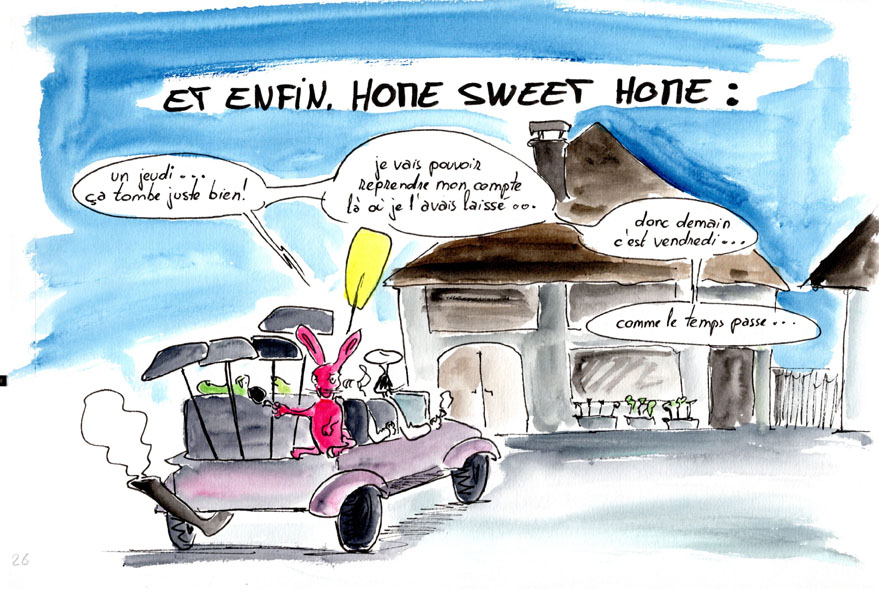 ET ENFIN, HOME SWEET HOME :
un jeudi...
ça tombe juste bien!
je vais pouvoir
reprendre mon compte
là où je l'avais laissé...
donc demain
c'est vendredi...
comme le temps passe...
26